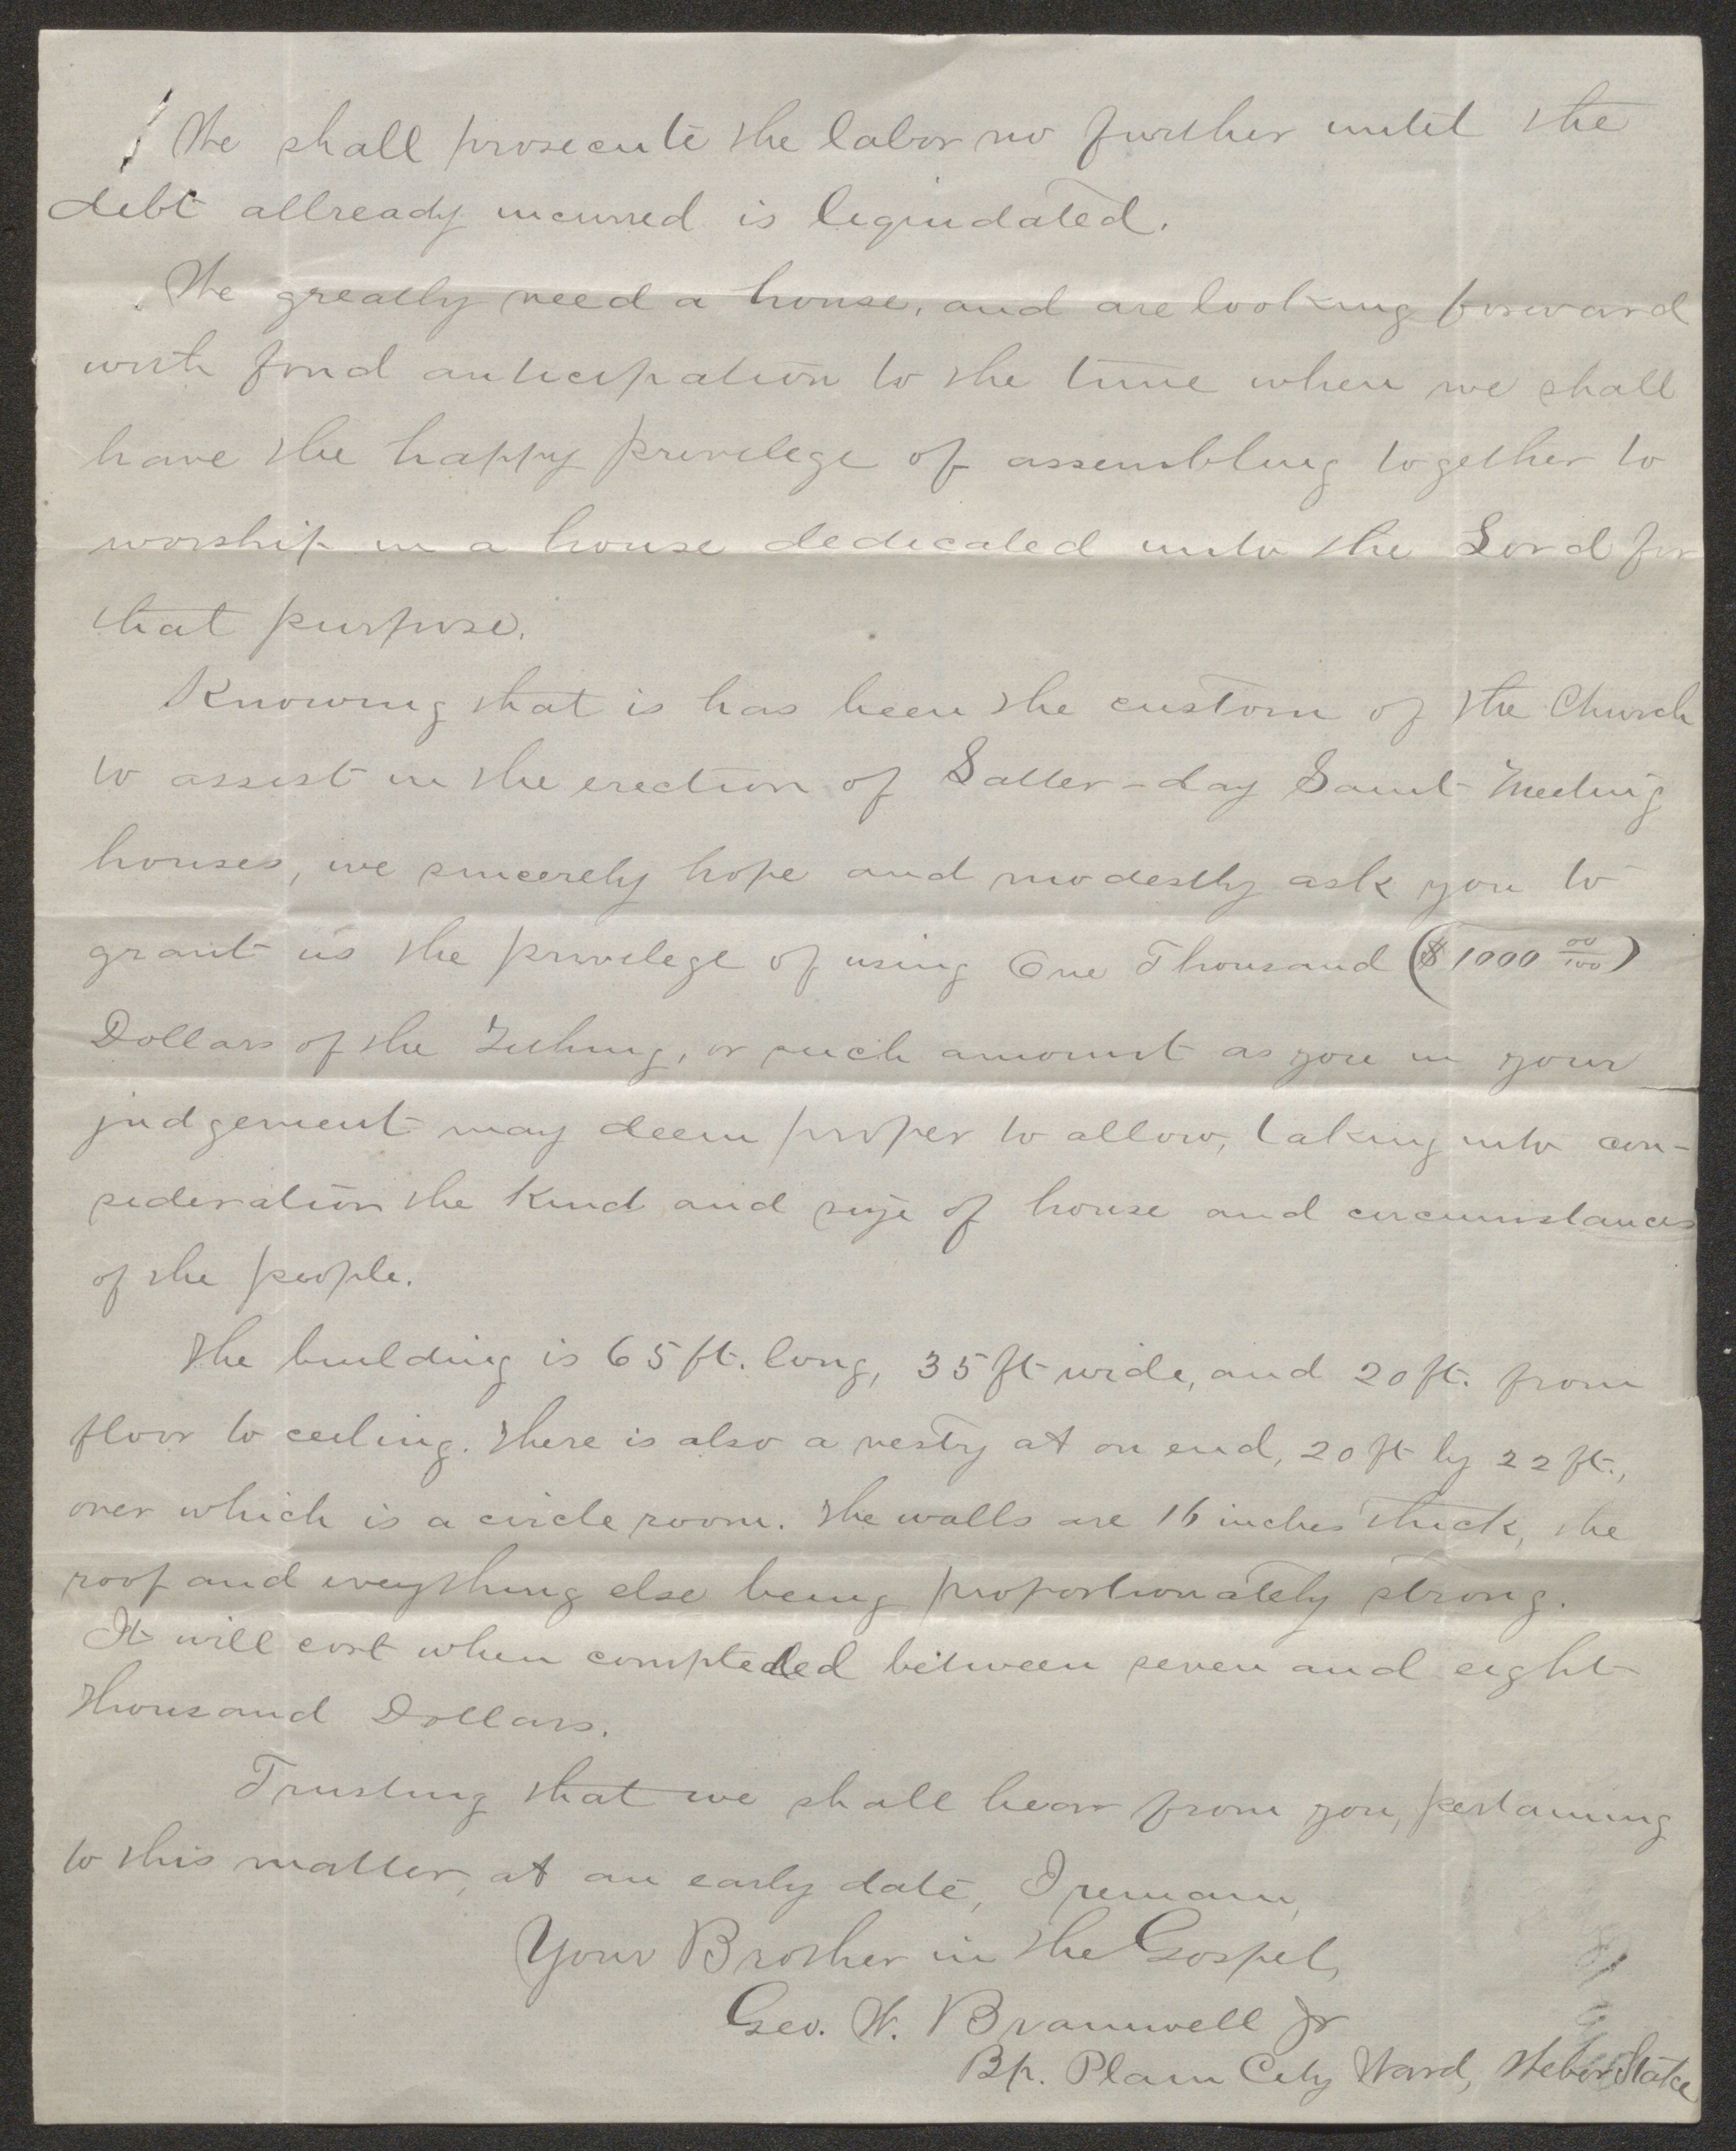 We shall prosecute the labor no further until the
debt allready incurred is liqiudated.
We greatly need a house, and are looking forward
with fond anticipation to the time when we shall
have the happy privelege of assembling together to
worship in a house dedicated unto the Lord for
that purpose.
Knowing that is has been the custom of the Church
to assist in the erection of Latter-day Saint Meeting
houses, we sincerely hope and modestly ask you to
grant us the privelege of using One Thousand ($1000 00/100)
Dollars of the Tithing, or such amount as you in your
judgement may deem proper to allow, taking into con-
sideration the Kind and size of house and circumstances
of the people.
The building is 65 ft. long, 35 ft wide, and 20 ft. from
floor to ceiling. There is also a vestry at on end, 20 ft by 22 ft.,
over which is a circle room. The walls are 16 inches thick, the
roof and everything else being proportionately strong.
It will cost when completed between seven and eight
Thousand Dollars.
Trusting that we shall hear from you, pertaining
to this matter, at an early date, I remain,
Your Brother in the Gospel,
Geo. W. Bramwell Jr
Bp. Plain City Ward, Weber Stake